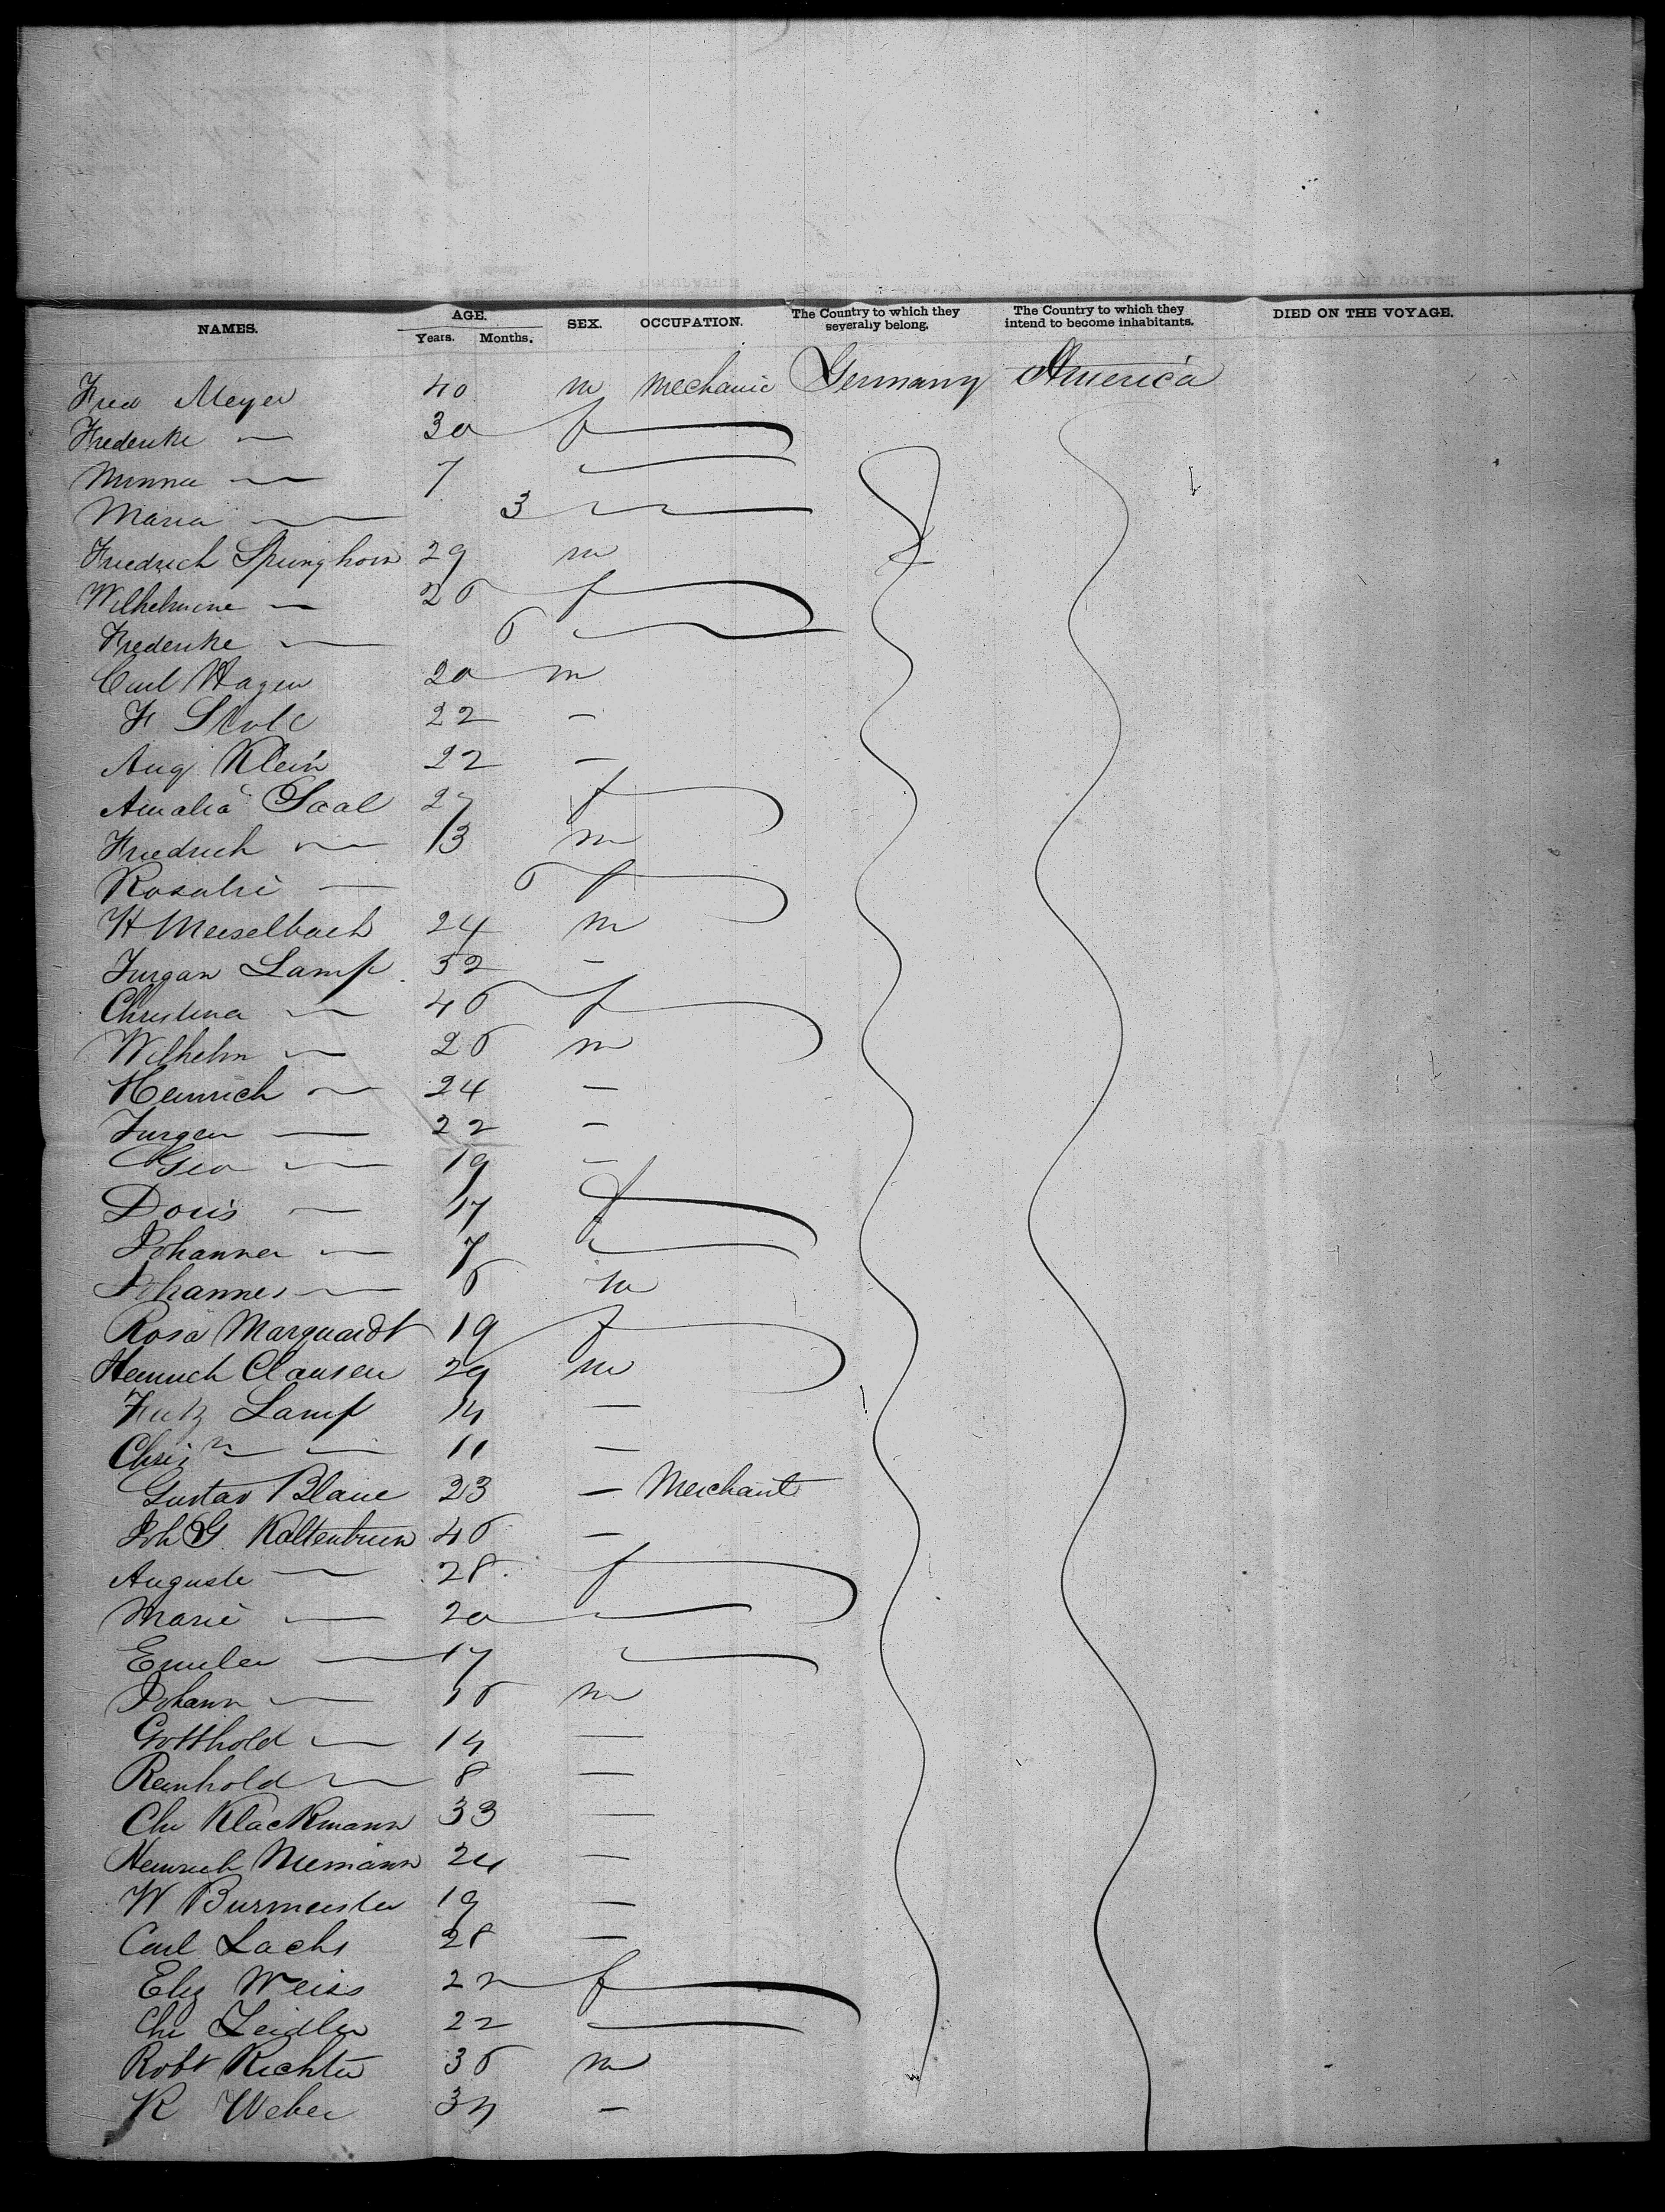 NAMES. AGE. Years. Months. SEX. OCCUPATION. The Country to which they severally belong. The Country to which they intend to become inhabitants. DIED ON THE VOYAGE.
Fred Meyer 40 m mechanic Germany America
Frederike — 30 f
Minna — 7
Maria — 3
Friedrich Springhorn 29 m
Wilhelmine — 26 f
Frederike — 6
Carl Hagen 20 m
F 22 —
Aug Klein 22 —
Amalia Saal 27 f
Friedrich — 13 m
Rosalie — 6 f
H Meiselbach 24 m
Jurgan Lamp 52 —
Christina — 46 f
Wilhelm — 26 m
Heinrich — 24 —
Jurgen — 22 —
Geo — 19 —
Doris — 17 f
Johanna — 7
Johannes — 6 m
Rosa Marquardt 19 f
Heinrich Clausen 29 m
Fritz Lamp 14 —
Chrisn — 11 —
Gustav Blaue 23 — Merchant
Joh G Kaltenbrun 46 —
Auguste — 28 f
Marie — 20
Emilea — 17
Johann — 16 m
Gotthold — 14 —
Reinhold — 8 —
Chr Klackmann 33 —
Heinrich Niemann 24 —
W Burmeister 19 —
Carl Lachs 28 —
Eliz Weiss 22 f
Chr Zeidler 22
Robt Richter 36 m
R Weber 34 —